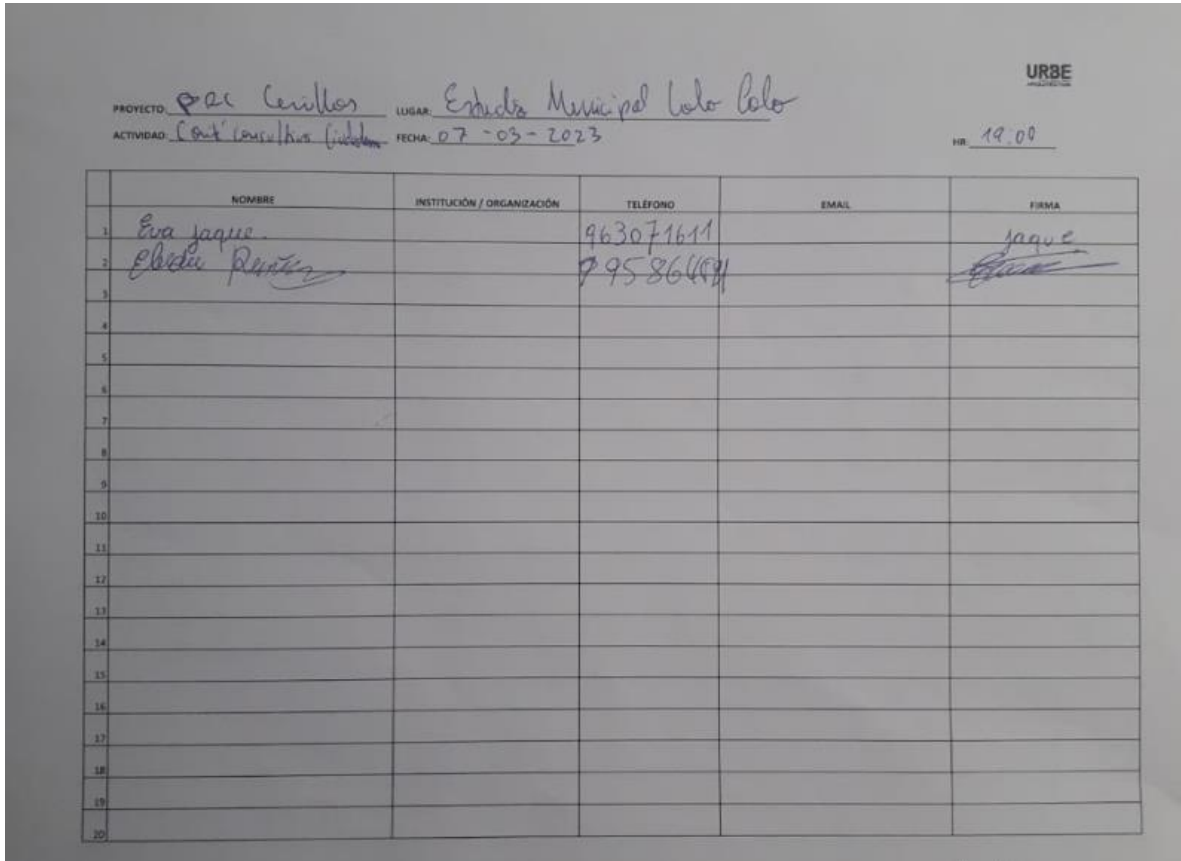 URBE
ARQUITECTURA
PROYECTO: PRC Cerrillos LUGAR: Estadio Municipal Colo Colo
ACTIVIDAD: Comité Consultivo Ciudadano FECHA: 07-03-2023 HR: 19:00
NOMBRE INSTITUCIÓN / ORGANIZACIÓN TELÉFONO EMAIL FIRMA
1 Eva Jaque. 963071611 Jaque
2
3
4
5
6
7
8
9
10
11
12
13
14
15
16
17
18
19
20